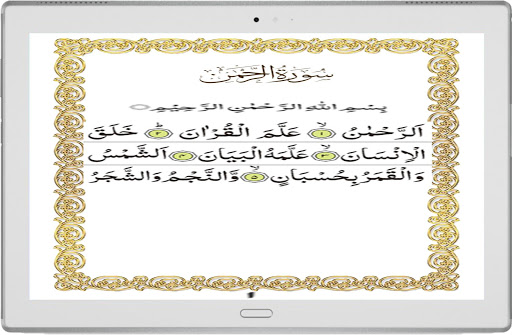 سورة الرحمن
بِسْمِ اللهِ الرَّحْمٰنِ الرَّحِيْمِ
اَلرَّحْمٰنُ ۙ﴿۱﴾ عَلَّمَ الْقُرْاٰنَ ؕ﴿۲﴾ خَلَقَ
الْاِنْسَانَ ۙ﴿۳﴾ عَلَّمَهُ الْبَيَانَ ﴿۴﴾ اَلشَّمْسُ
وَالْقَمَرُ بِحُسْبَانٍ ۙ﴿۵﴾ وَّالنَّجْمُ وَالشَّجَرُ